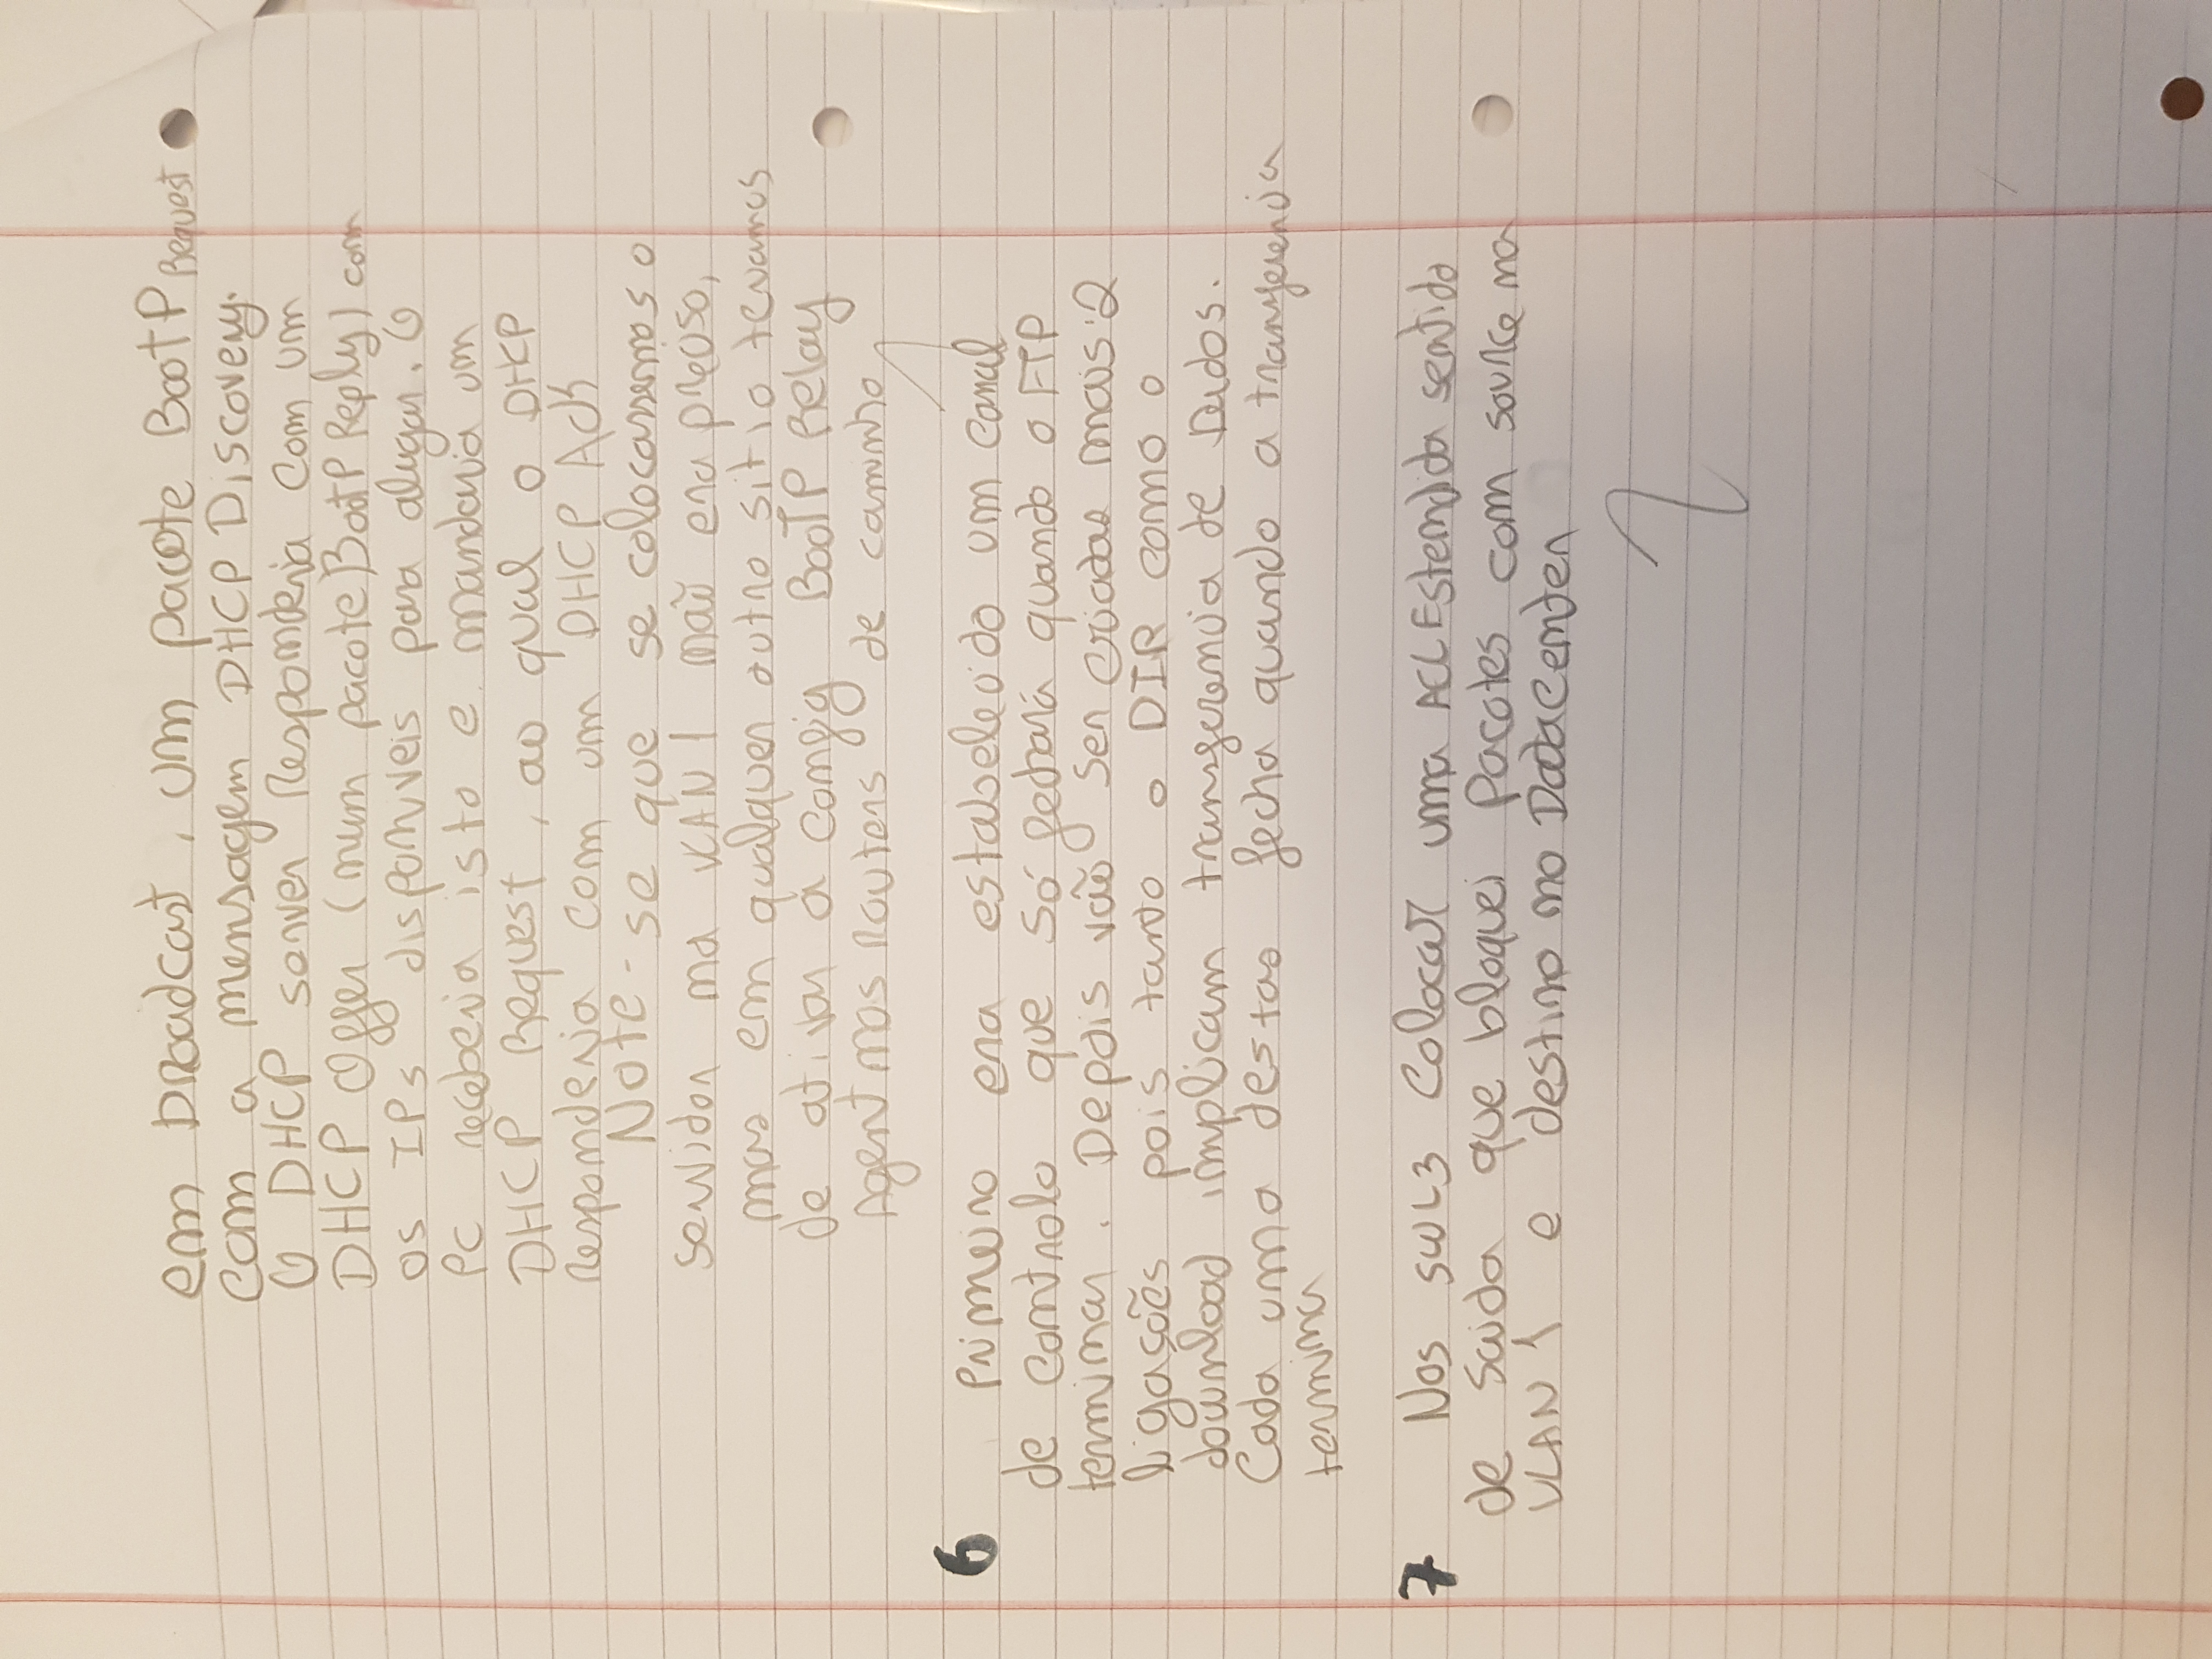 em broadcast, um pacote BootP Request
com a mensagem DHCP Discovery.
O DHCP server responderia com um
DHCP Offer (num pacote BootP Reply) com
os IPs disponiveis para alugar. O
PC receberia isto e mandaria um
DHCP Request, ao qual o DHCP
responderia com um DHCP Ack
Note-se que se colocassemos o
servidor na VLAN 1 não era preciso,
mas em qualquer outro sitio teriamos
de ativar a config BooTP Relay
Agent nos Routers de caminho
6 Primeiro era estabelecido um canal
de controlo que só fechará quando o FTP
terminar. Depois vão ser criadas mais 2
ligações pois tanto o DIR como o
download implicam transferencia de Dados.
Cada uma destas fecha quando a transferencia
termina
7 Nos SWL3 Colocar uma ACL Estendida sentido
de saida que bloquei pacotes com source na
VLAN 1 e destino no DataCenter